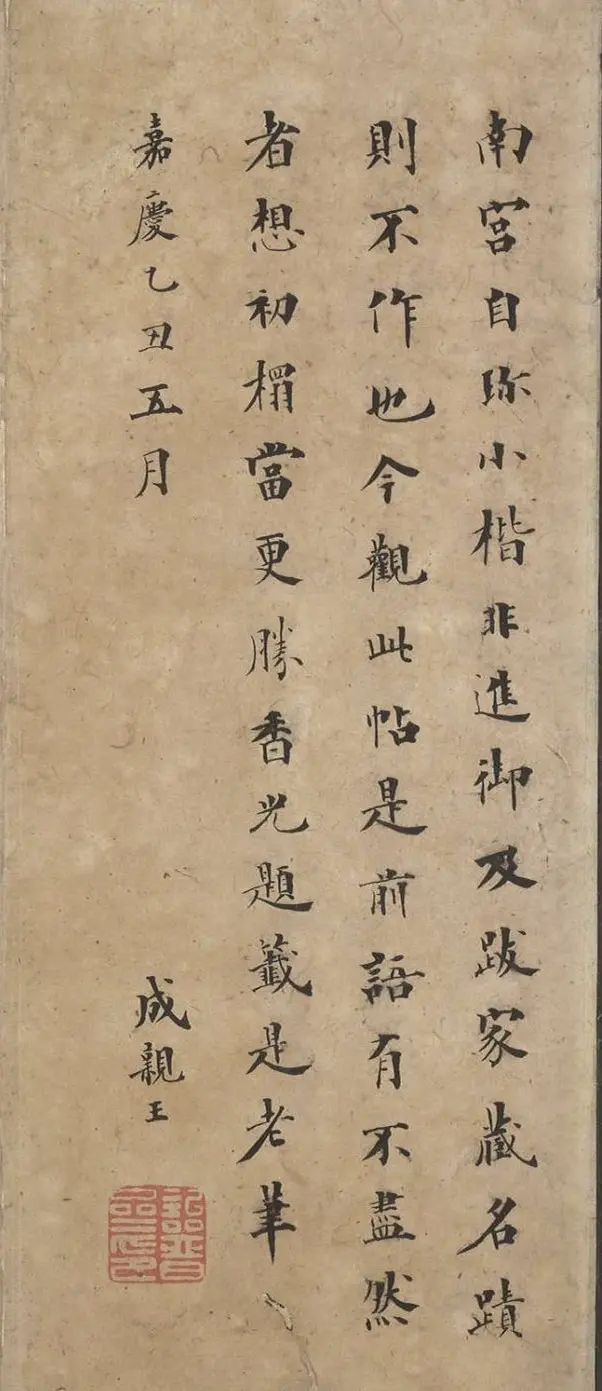 南宮自珎小楷非進御及跋家藏名蹟
則不作也今觀此帖是前語有不盡然
者想初榻當更勝香光題籤是老筆
嘉慶乙丑五月
成親王
詒晉齋印